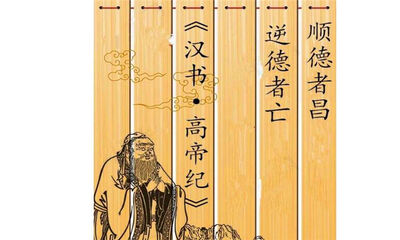 顺德者昌
逆德者亡
《汉书•高帝纪》